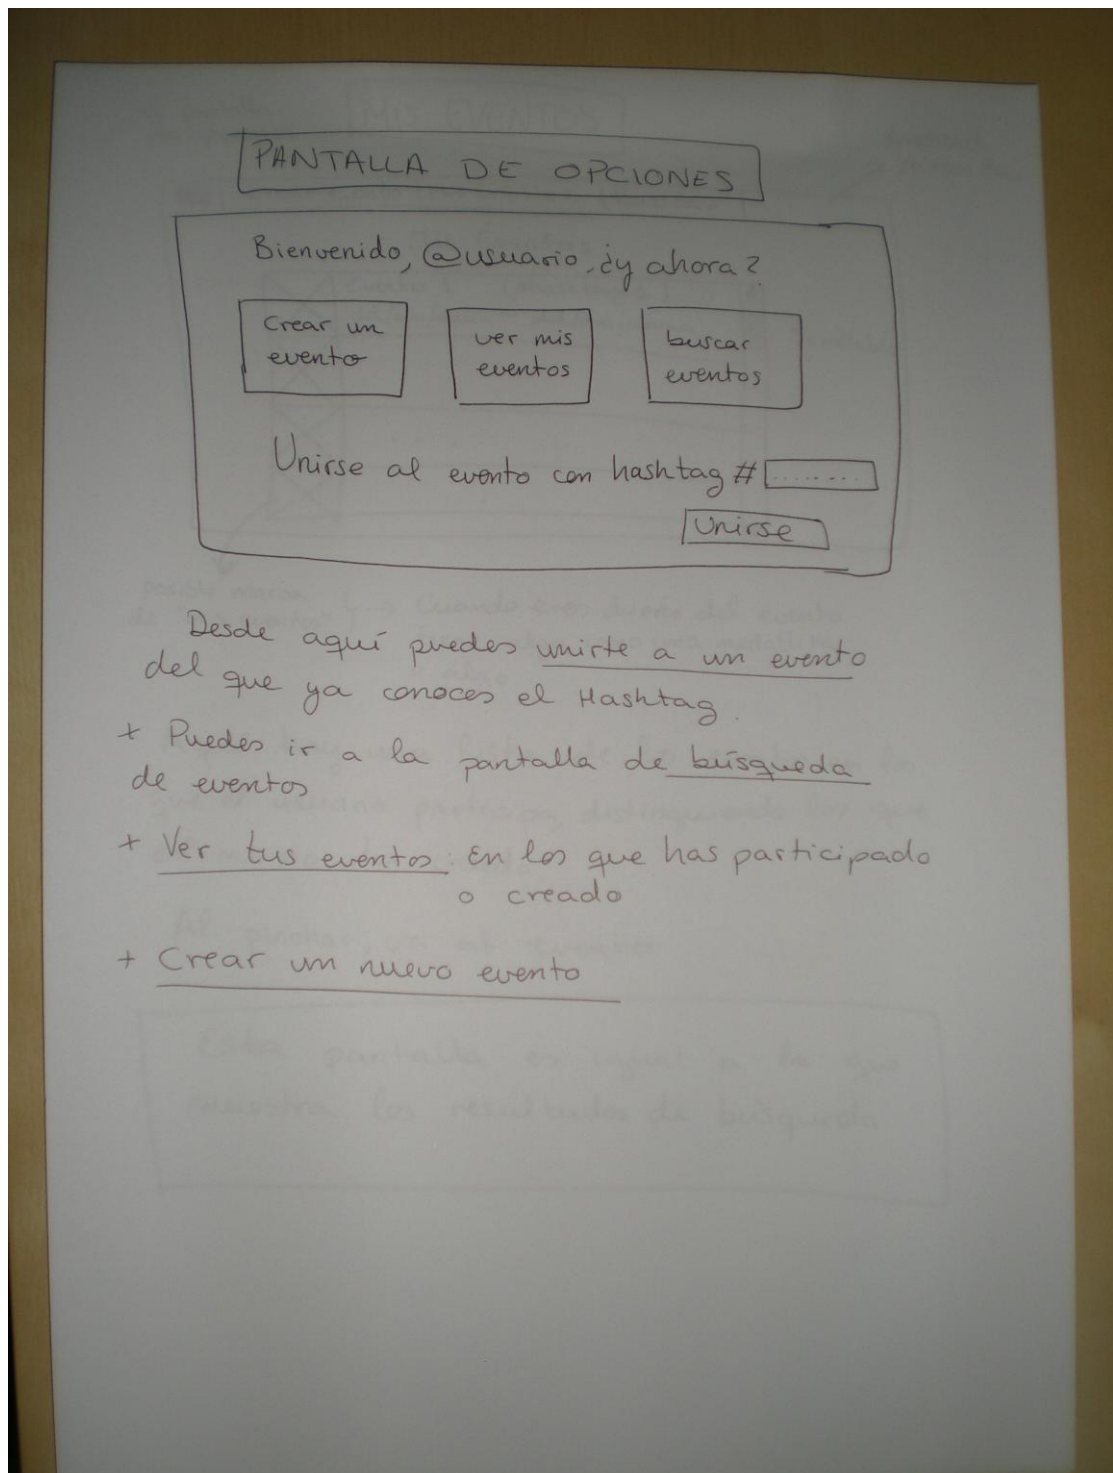 PANTALLA DE OPCIONES
Bienvenido, @usuario, ¿y ahora?
Crear un
evento
ver mis
eventos
buscar
eventos
Unirse al evento con hashtag # ........
Unirse
Desde aquí puedes unirte a un evento
del que ya conoces el Hashtag.
+ Puedes ir a la pantalla de búsqueda
de eventos
+ Ver tus eventos: En los que has participado
o creado
+ Crear un nuevo evento
MIS EVENTOS
Esta pantalla es igual a la que
muestra los resultados de búsqueda